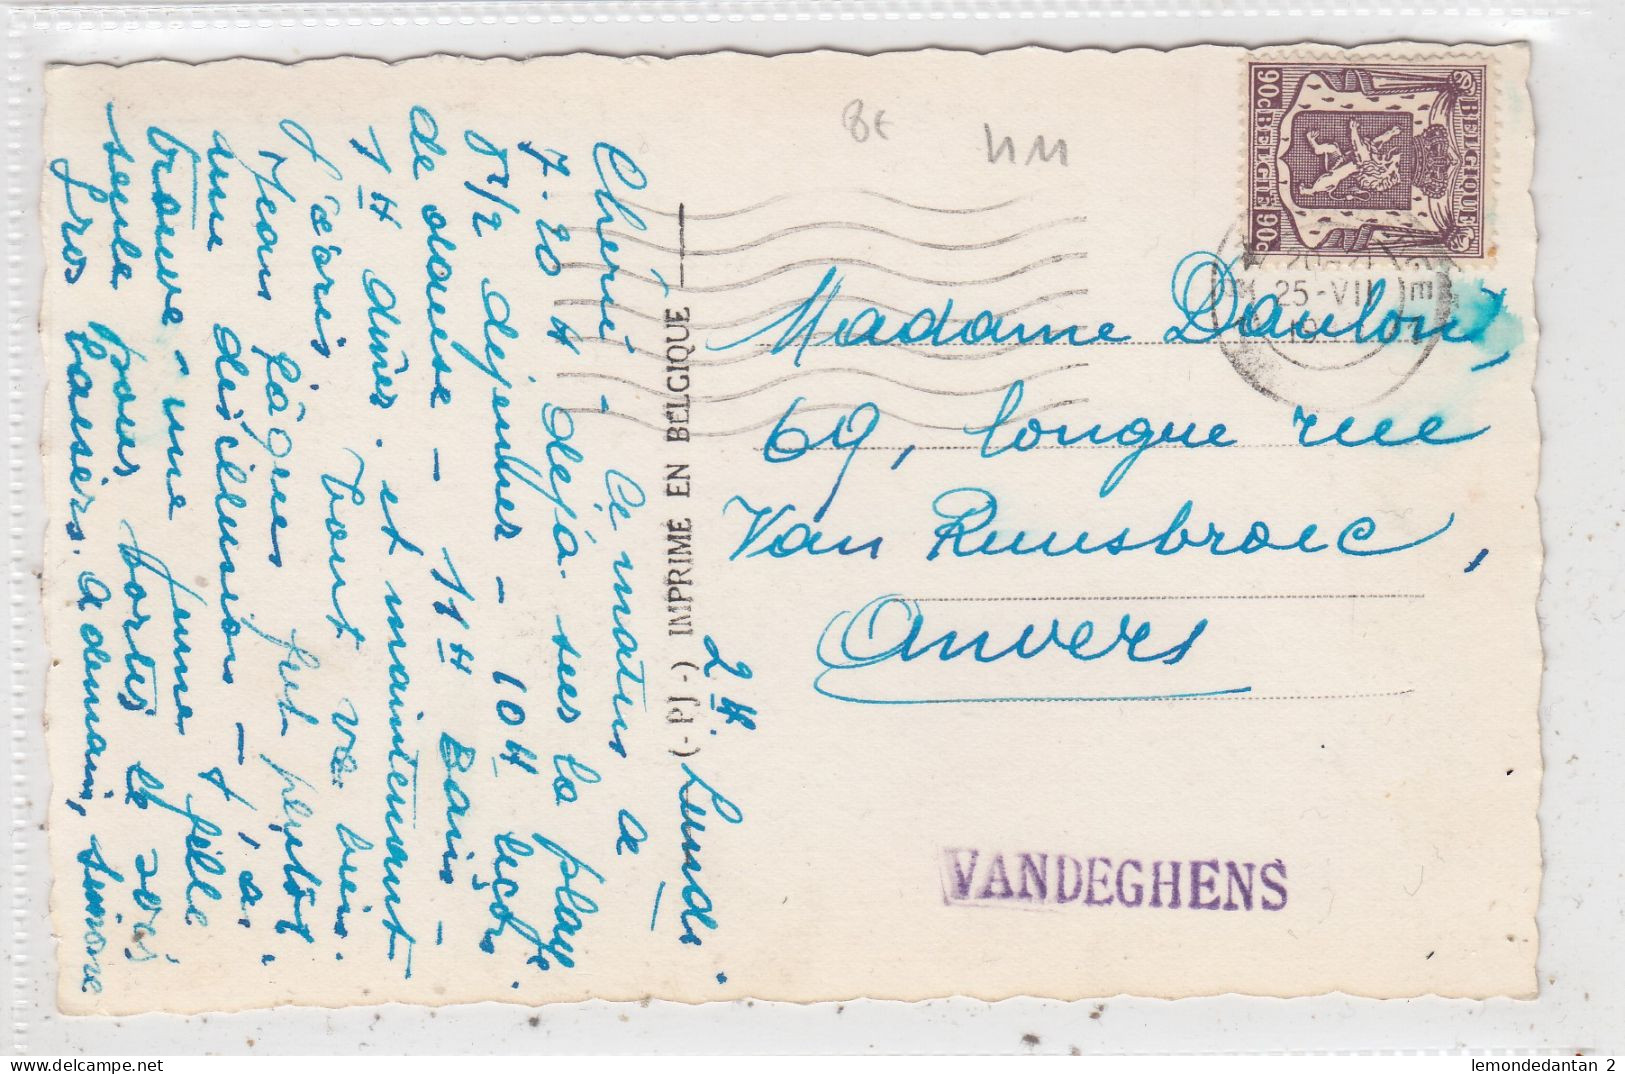 2 H. Lundi.
Chérie - Ce matin à
7.20 H déjà sur la plage
8 1/2 déjeuner - 10 H leçon
de danse - 11 H Bain -
1 H dîner. et maintenant
j'écris tout va bien.
Jean Pâques fut plutôt
une désillusion - j'ai
trouvé une jeune fille
seule pour sortir le soir
Gros baisers. A demain, Simone
(- PJ -) IMPRIMÉ EN BELGIQUE
8€
BELGIQUE
90c BELGIE 90c
25-VII
19
Madame Daulon,
69, longue rue
Van Ruusbroec,
Anvers
VANDEGHENS
lemondedantan 2